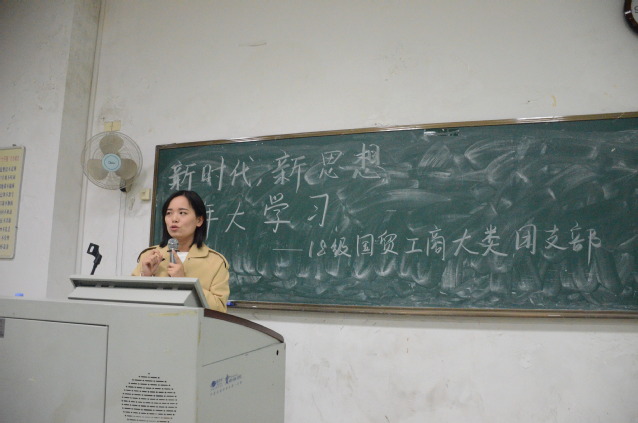 新时代，新思想
年大学习
——18级国贸工商大类团支部